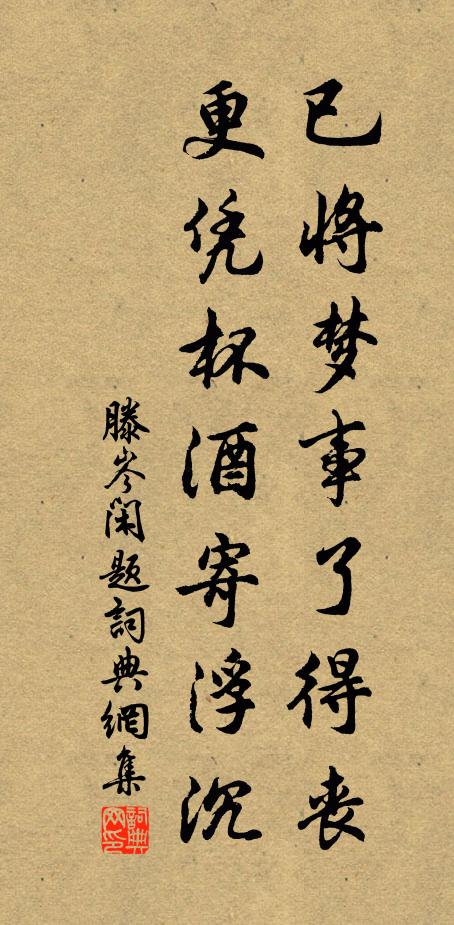 已将梦事了得丧
更凭杯酒寄浮沉
滕岑闲题詞典網集
詞典網印